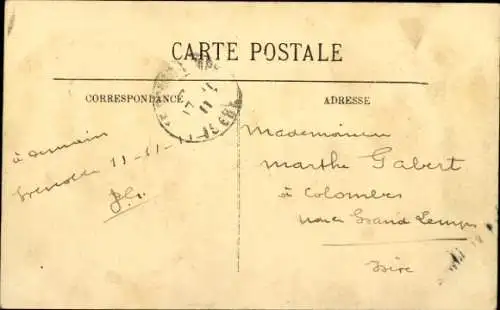 CARTE POSTALE
CORRESPONDANCE
ADRESSE
à demain
Grenoble 11-11-11
Mademoiselle
Marthe Gabert
à Colombes
Grand Lemps
Isère